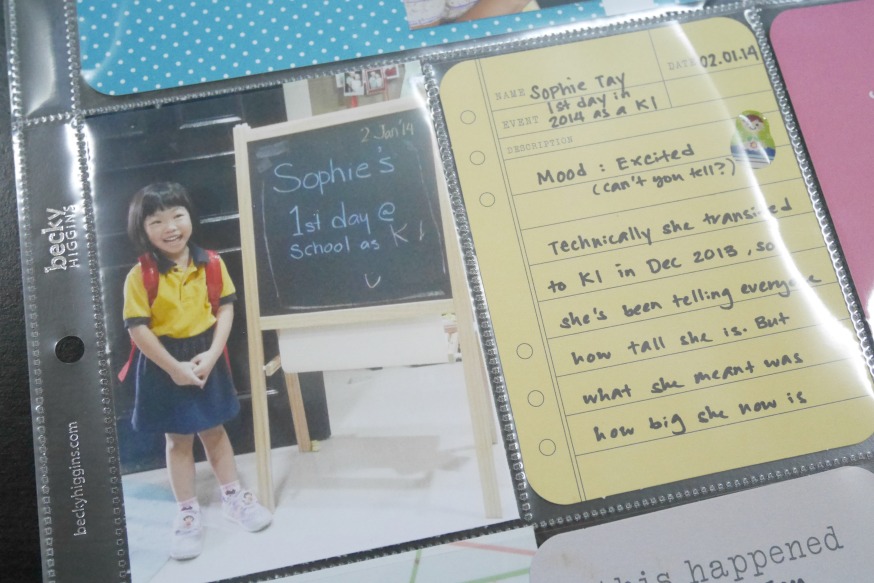 becky
HIGGINS
beckyhiggins.com
2 Jan '14
Sophie's
1st day @
School as K1
NAME Sophie Tay
DATE 02.01.14
EVENT 1st day in
2014 as a K1
DESCRIPTION
Mood : Excited
(can't you tell?)
Technically she transited
to K1 in Dec 2013, so
she's been telling everyone
how tall she is. But
what she meant was
how big she now is
this happened